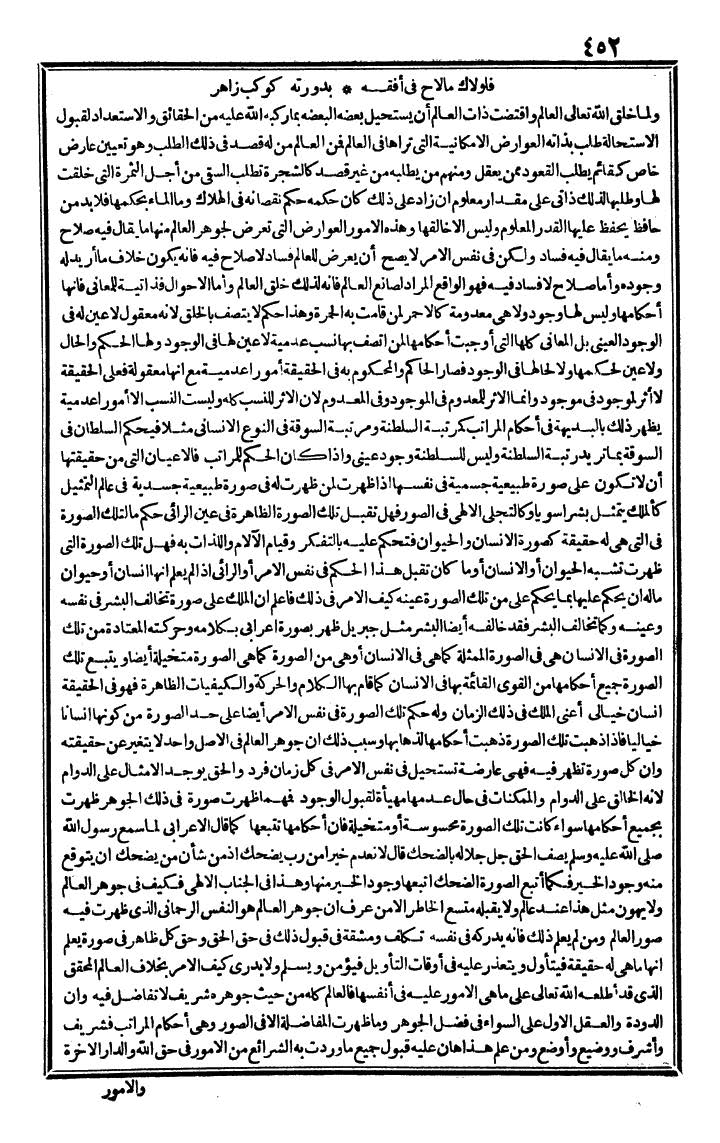 ٤٥٢
فلولاك مالاح فى أفقـــه * بدورته كوكب زاهر
ولما خلق الله تعالى العالم واقتضت ذات العالم أن يستحيل بعضه لبعضه بما ركبه الله عليه من الحقائق والاستعداد لقبول
الاستحالة طلب بذاته العوارض الامكانية التى تراها فى العالم فمن العالم من له قصد فى ذلك الطلب وهو تعيين عارض
خاص كقائم يطلب القعود ممن يعقل ومنهم من يطلبه من غير قصد كالشجرة تطلب السقى من أجل الثمرة التى خلقت
لها وطلبها لذلك ذاتى على مقدار معلوم ان زاد على ذلك كان حكمه حكم نقصانه فى الهلاك وما الماء بحكمها فلا بد من
حافظ يحفظ عليها القدر المعلوم وليس الا خالقها وهذه الامور العوارض التى تعرض لجوهر العالم منها ما يقال فيه صلاح
ومنه ما يقال فيه فساد ولكن فى نفس الامر لا يصح أن يعرض للعالم فساد لا صلاح فيه فانه يكون خلاف ما أريد له
وجوده وأما صلاح لا فساد فيه فهو الواقع المراد لصانع العالم فانه لذلك خلق العالم وأما الاحوال فذاتية للمعانى فانها
أحكامها وليس لها وجود ولا هى معدومة كالاحمر لمن قامت به الحمرة وهذا حكم لا يتصف بالخلق لانه معقول لا عين له فى
الوجود العينى بل المعانى كلها التى أوجبت أحكامها لمن اتصف بها نسب عدمية لا عين لها فى الوجود ولها الحكم والحال
ولا عين لحكمها ولا لحالها فى الوجود فصار الحاكم والمحكوم به فى الحقيقة أمورا عدمية مع انها معقولة فعلى الحقيقة
لا أثر لموجود فى موجود وانما الاثر للمعدوم فى الموجود وفى المعدوم لان الاثر للنسب كله وليست النسب الا أمورا عدمية
يظهر ذلك بالبديهة فى أحكام المراتب كمرتبة السلطنة ومرتبة السوقة فى النوع الانسانى مثلا فيحكم السلطان فى
السوقة بما تريد رتبة السلطنة وليس للسلطنة وجود عينى واذا كان الحكم للمراتب فالاعيان التى من حقيقتها
أن لا تكون على صورة طبيعية جسمية فى نفسها اذا ظهرت لمن ظهرت له فى صورة طبيعية جسدية فى عالم التمثيل
كالملك يتمثل بشرا سويا وكالتجلى الالهى فى الصور فهل تقبل تلك الصورة الظاهرة فى عين الرائى حكم ما لتلك الصورة
فى التى هى له حقيقة كصورة الانسان والحيوان فتحكم عليه بالتفكر وقيام الآلام واللذات به فهل تلك الصورة التى
ظهرت تشبه الحيوان أو الانسان أو ما كان تقبل هذا الحكم فى نفس الامر أو الرائى اذا لم يعلم انها انسان أو حيوان
ماله ان يحكم عليها بما يحكم على من تلك الصورة عينه كيف الامر فى ذلك فاعلم ان الملك على صورة تخالف البشر فى نفسه
وعينه وكما تخالف البشر فقد خالفه أيضا البشر مثل جبريل ظهر بصورة اعرابى بكلامه وحركته المعتادة من تلك
الصورة فى الانسان هى فى الصورة الممثلة كما هى فى الانسان أو هى من الصورة كما هى الصورة متخيلة أيضا ويتبع تلك
الصورة جميع أحكامها من القوى القائمة بها فى الانسان كما قام بها الكلام والحركة والكيفيات الظاهرة فهو فى الحقيقة
انسان خيالى أعنى الملك فى ذلك الزمان وله حكم تلك الصورة فى نفس الامر أيضا على حد الصورة من كونها انسانا
خياليا فاذا ذهبت تلك الصورة ذهبت أحكامها لذهابها وسبب ذلك ان جوهر العالم فى الاصل واحد لا يتغير عن حقيقته
وان كل صورة تظهر فيه فهى عارضة تستحيل فى نفس الامر فى كل زمان فرد والحق يوجد الامثال على الدوام
لانه الخالق على الدوام والممكنات فى حال عدمها مهيأة لقبول الوجود فمهما ظهرت صورة فى ذلك الجوهر ظهرت
بجميع أحكامها سواء كانت تلك الصورة محسوسة أو متخيلة فان أحكامها تتبعها كما قال الاعرابى لما سمع رسول الله
صلى الله عليه وسلم يصف الحق جل جلاله بالضحك قال لا نعدم خيرا من رب يضحك اذ من شأن من يضحك ان يتوقع
منه وجود الخير فكما أتبع الصورة الضحك اتبعها وجود الخير منها وهذا فى الجناب الالهى فكيف فى جوهر العالم
ولا يهون مثل هذا عند عالم ولا يقبله متسع الخاطر الا من عرف ان جوهر العالم هو النفس الرحمانى الذى ظهرت فيه
صور العالم ومن لم يعلم ذلك فانه يدركه فى نفسه تكلف ومشقة فى قبول ذلك فى حق الحق وحق كل ظاهر فى صورة يعلم
انها ما هى له حقيقة فيتأول ويتعذر عليه فى أوقات التأويل فيؤمن ويسلم ولا يدرى كيف الامر بخلاف العالم المحقق
الذى قد أطلعه الله تعالى على ما هى الامور عليه فى أنفسها فالعالم كله من حيث جوهره شريف لا تفاضل فيه وان
الدودة والعقل الاول على السواء فى فضل الجوهر وما ظهرت المفاضلة الا فى الصور وهى أحكام المراتب فشريف
وأشرف ووضيع وأوضع ومن علم هذا هان عليه قبول جميع ما وردت به الشرائع من الامور فى حق الله والدار الآخرة
والامور